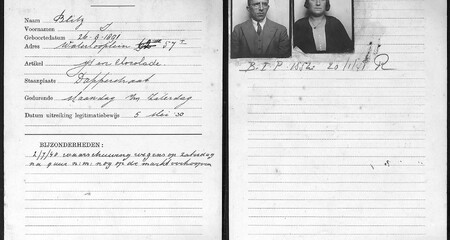 Naam Blitz
Voornamen S
Geboortedatum 26-9-1891
Adres Waterlooplein 57 I
Artikel IJs en Chocolade
Staanplaats Dapperstraat
Gedurende Maandag t/m Zaterdag
Datum uitreiking legitimatiebewijs 5 Mei 30
BIJZONDERHEDEN:
1/7/40 waarschuwing wegens op Zaterdag
na 9 uur n.m. nog op de markt verkoopen
R